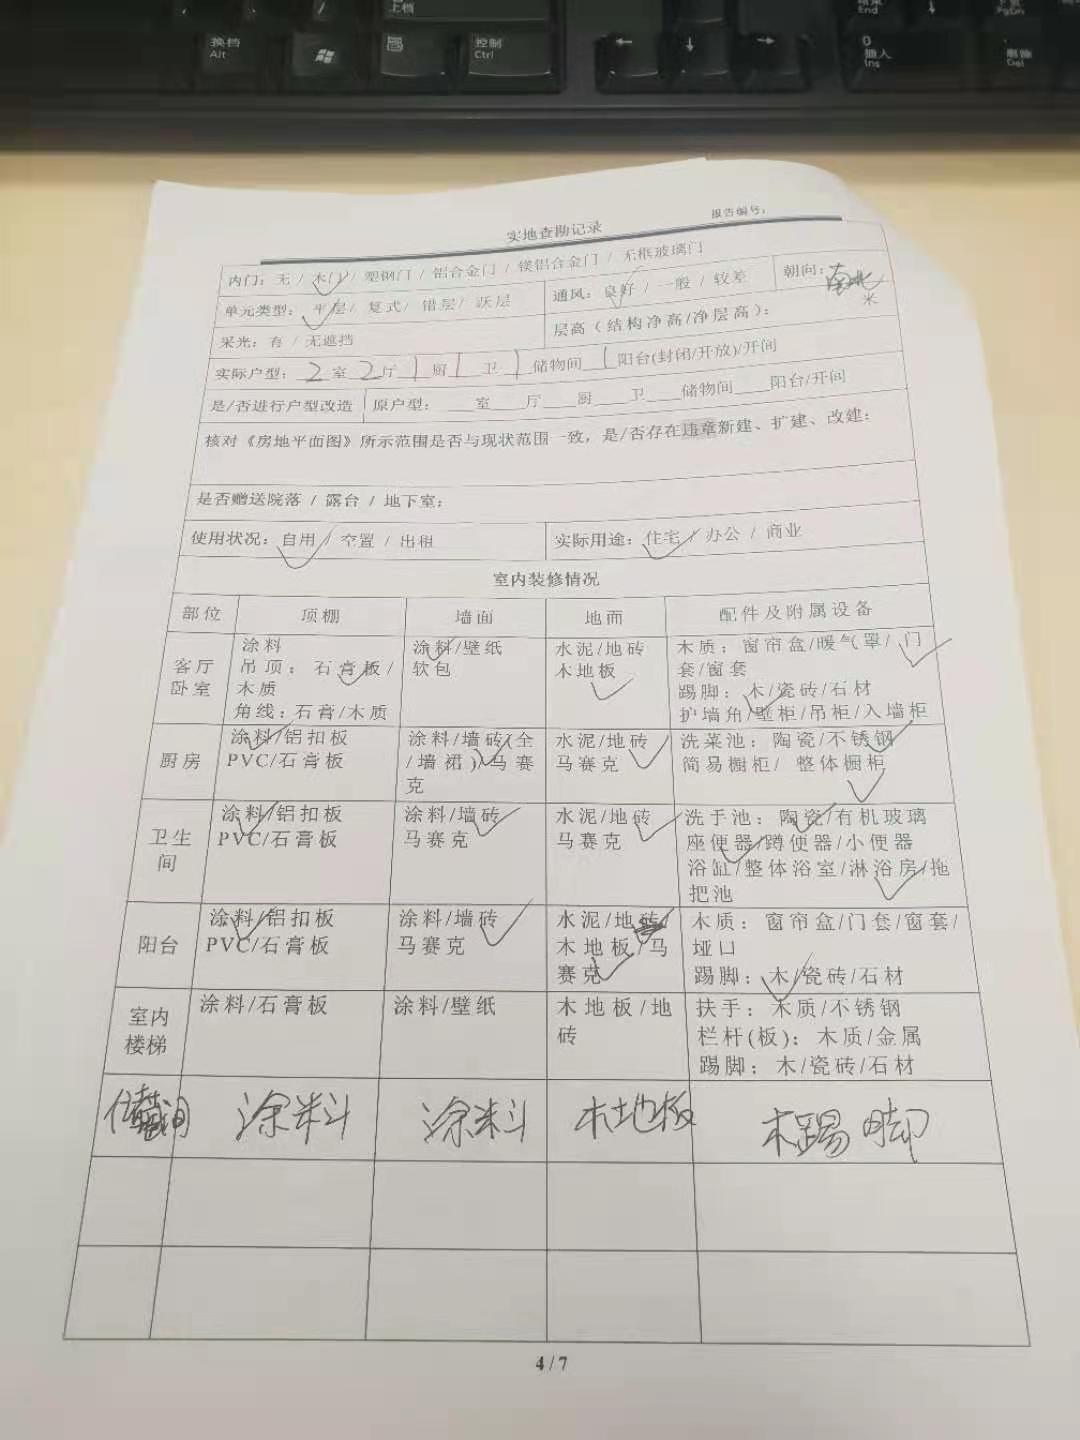 上档
End
PgDn
换档
Alt
控制
Ctrl
0
插入
Ins
删除
Del
报告编号：
实地查勘记录
内门：无 / 木门 / 塑钢门 / 铝合金门 / 镁铝合金门 / 无框玻璃门
单元类型： 平层/ 复式/ 错层/ 跃层
通风：良好 / 一般 / 较差
朝向：南北
采光：有 / 无遮挡
层高（结构净高/净层高）： 米
实际户型： 2 室 2 厅 1 厨 1 卫 1 储物间 1 阳台(封闭/开放)/开间
是/否进行户型改造
原户型： ___室___厅___厨___卫___储物间___阳台/开间
核对《房地平面图》所示范围是否与现状范围一致，是/否存在违章新建、扩建、改建：
是否赠送院落 / 露台 / 地下室：
使用状况：自用 / 空置 / 出租
实际用途：住宅 / 办公 / 商业
室内装修情况
部位
顶棚
墙面
地面
配件及附属设备
客厅
卧室
涂料
吊顶：石膏板/
木质
角线：石膏/木质
涂料/壁纸
软包
水泥/地砖
木地板
木质：窗帘盒/暖气罩/门
套/窗套
踢脚：木/瓷砖/石材
护墙角/壁柜/吊柜/入墙柜
厨房
涂料/铝扣板
PVC/石膏板
涂料/墙砖(全
/墙裙)/马赛
克
水泥/地砖
马赛克
洗菜池：陶瓷/不锈钢
简易橱柜/ 整体橱柜
卫生
间
涂料/铝扣板
PVC/石膏板
涂料/墙砖
马赛克
水泥/地砖
马赛克
洗手池：陶瓷/有机玻璃
座便器/蹲便器/小便器
浴缸/整体浴室/淋浴房/拖
把池
阳台
涂料/铝扣板
PVC/石膏板
涂料/墙砖
马赛克
水泥/地砖/
木地板/马
赛克
木质：窗帘盒/门套/窗套/
垭口
踢脚：木/瓷砖/石材
室内
楼梯
涂料/石膏板
涂料/壁纸
木地板/地
砖
扶手：木质/不锈钢
栏杆(板)：木质/金属
踢脚：木/瓷砖/石材
储藏间
涂料
涂料
木地板
木踢脚
4/7